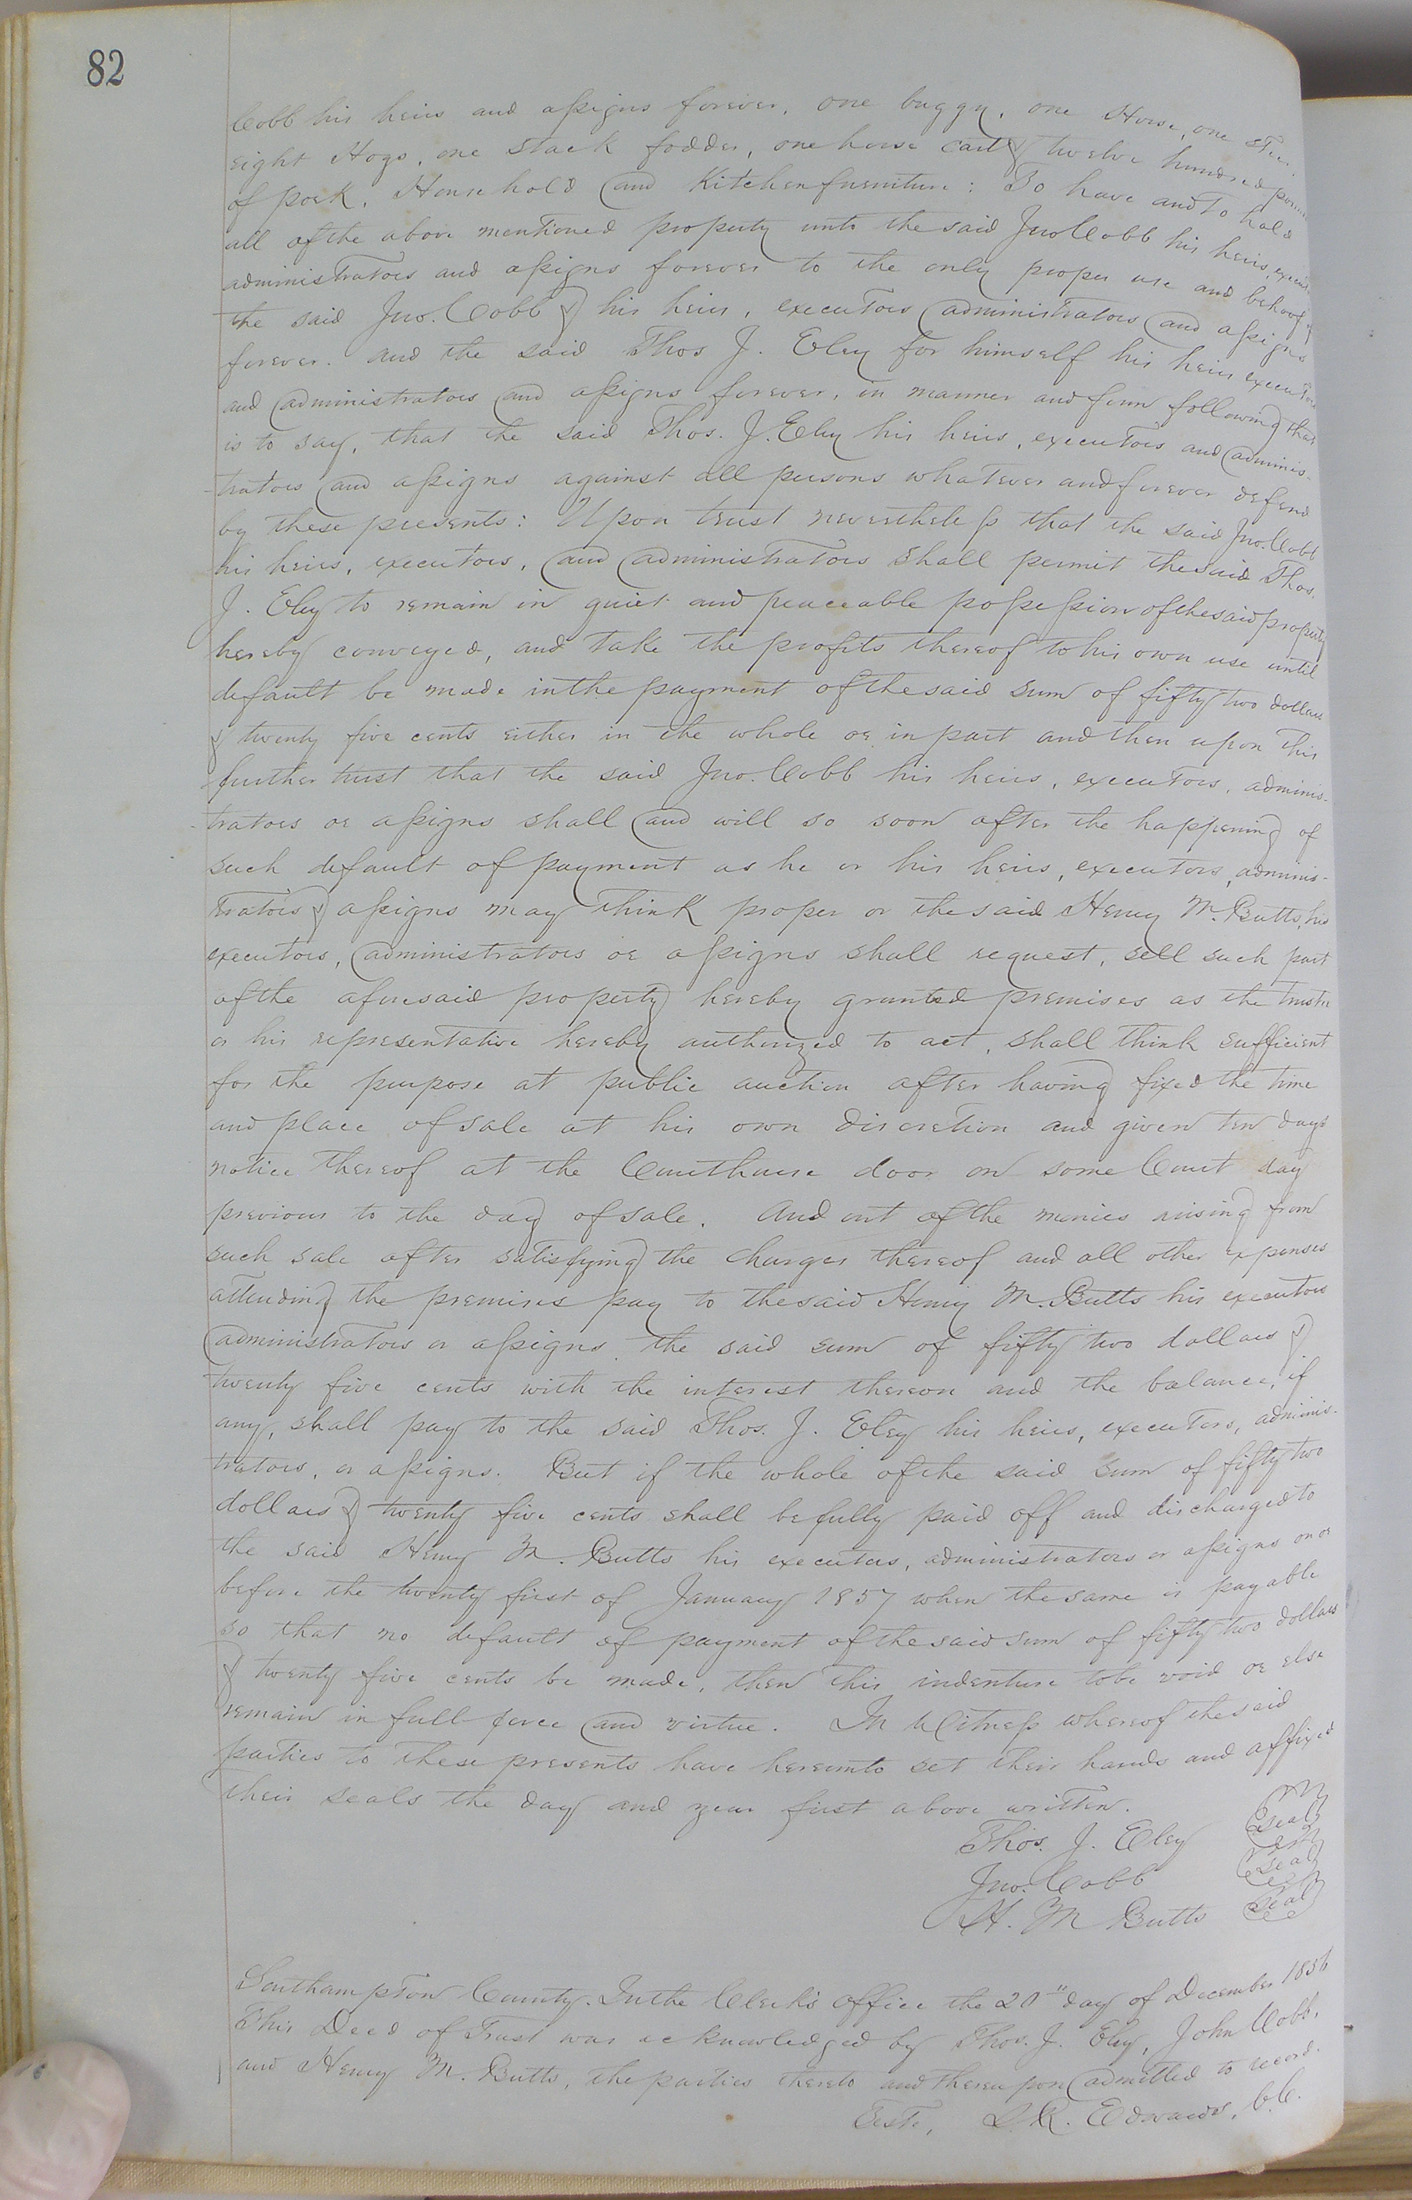 82
Cobb his heirs and assigns forever, one buggy, one Horse, one Steer,
eight Hogs, one stack fodder, one horse cart & twelve hundred pounds
of pork, Household and Kitchen furniture: To have and to hold
all of the above mentioned property unto the said Jno. Cobb his heirs,
administrators and assigns forever to the only proper use and behoof of
the said Jno. Cobb & his heirs, executors administrators and assigns
forever. And the said Thos J. Eley for himself his heirs executors
and administrators and assigns forever, in manner and form following that
is to say, that the said Thos. J. Eley his heirs, executors and adminis-
-trators and assigns against all persons whatever and forever defend
by these presents: Upon trust nevertheless that the said Jno. Cobb
his heirs, executors, and administrators shall permit the said Thos.
J. Eley to remain in quiet and peaceable possession of the said property
hereby conveyed, and take the profits thereof to his own use until
default be made in the payment of the said sum of fifty two dollars
& twenty five cents either in the whole or in part and then upon this
further trust that the said Jno. Cobb his heirs, executors, adminis-
-trators or assigns shall and will so soon after the happening of
such default of payment as he or his heirs, executors, adminis-
trators & assigns may think proper or the said Henry M. Butts, his
executors, administrators or assigns shall request, sell such part
of the aforesaid property hereby granted premises as the trustee
or his representative hereby authorized to act, shall think sufficient
for the purpose at public auction after having fixed the time
and place of sale at his own discretion and given ten days
notice thereof at the Courthouse door on some Court day
previous to the day of sale. And out of the monies arising from
such sale after satisfying the charges thereof and all other expenses
attending the premises pay to the said Henry M. Butts his executors
administrators or assigns the said sum of fifty two dollars &
twenty five cents with the interest thereon and the balance, if
any, shall pay to the said Thos. J. Eley his heirs, executors, adminis-
trators, or assigns. But if the whole of the said sum of fifty two
dollars & twenty five cents shall be fully paid off and discharged to
the said Henry M. Butts his executors, administrators or assigns on or
before the twenty first of January 1857 when the same is payable
so that no default of payment of the said sum of fifty two dollars
& twenty five cents be made, then this indenture to be void or else
remain in full force and virtue. In Witness whereof the said
parties to these presents have hereunto set their hands and affixed
their seals the day and year first above written.
Thos. J. Eley Seal
Jno. Cobb Seal
H. M Butts Seal
Southampton County. In the Clerk's office the 20" day of December 1856
This Deed of Trust was acknowledged by Thos. J. Eley, John Cobb,
and Henry M. Butts, the parties thereto and thereupon admitted to record.
Teste, L. R. Edwards, C.C.